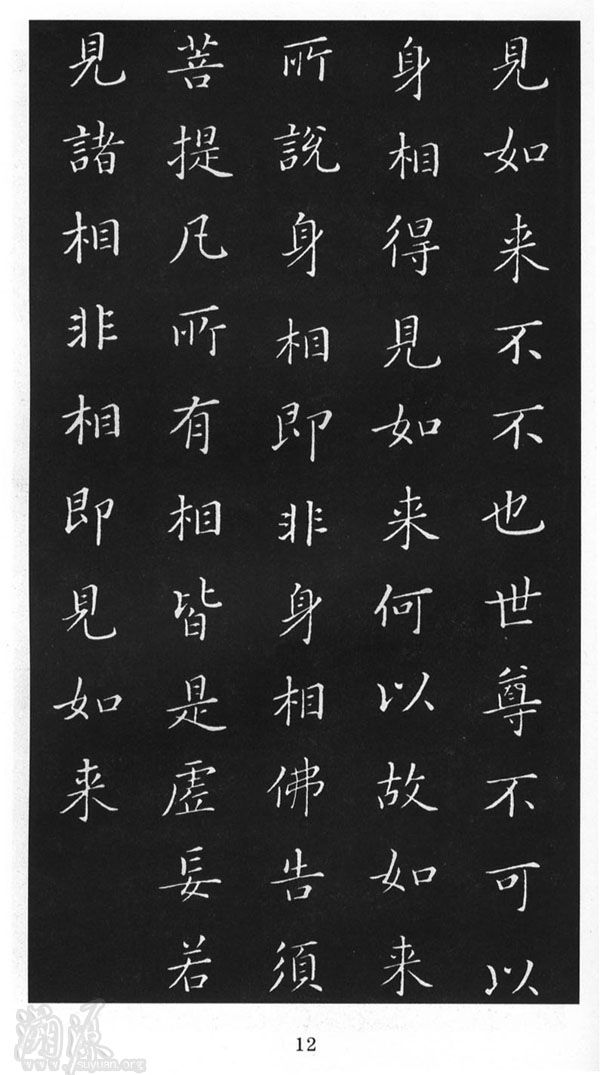 見如来不不也世尊不可以
身相得見如来何以故如来
所說身相即非身相佛告須
菩提凡所有相皆是虛妄若
見諸相非相即見如来
12
溯源
www.suyuan.org